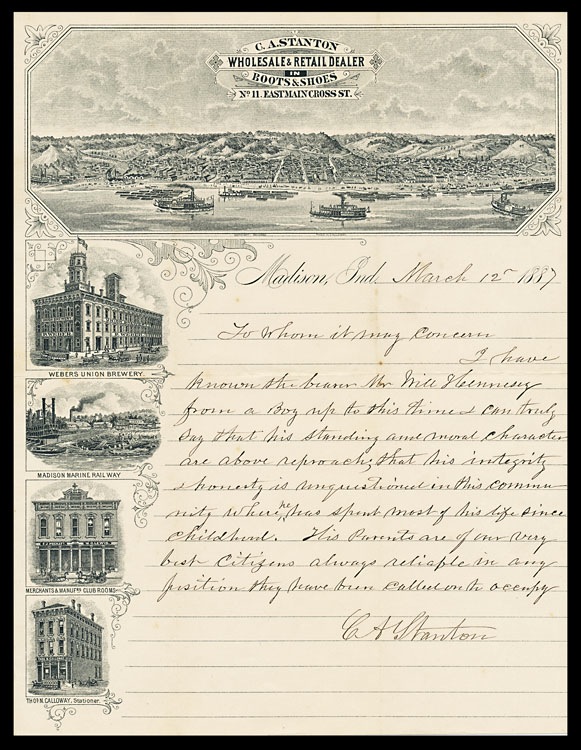 C. A. STANTON
WHOLESALE & RETAIL DEALER
IN
BOOTS & SHOES
No 11. EAST MAIN CROSS ST.
Madison, Ind. March 12" 1887
To whom it may concern
I have
Known the bearer Mr Will Hennesey
from a Boy up to this time & can truly
Say that his standing and moral character
are above reproach; that his integrity
& honesty is unquestioned in this commu
nity where he has spent most of his life since
childhood. His Parents are of our very
best Citizens always reliable in any
position they have been called on to occupy
C A Stanton
WEBERS UNION BREWERY.
MADISON MARINE RAILWAY
MERCHANTS & MANUFRS CLUB ROOMS
THOS. N. CALLOWAY, Stationer.